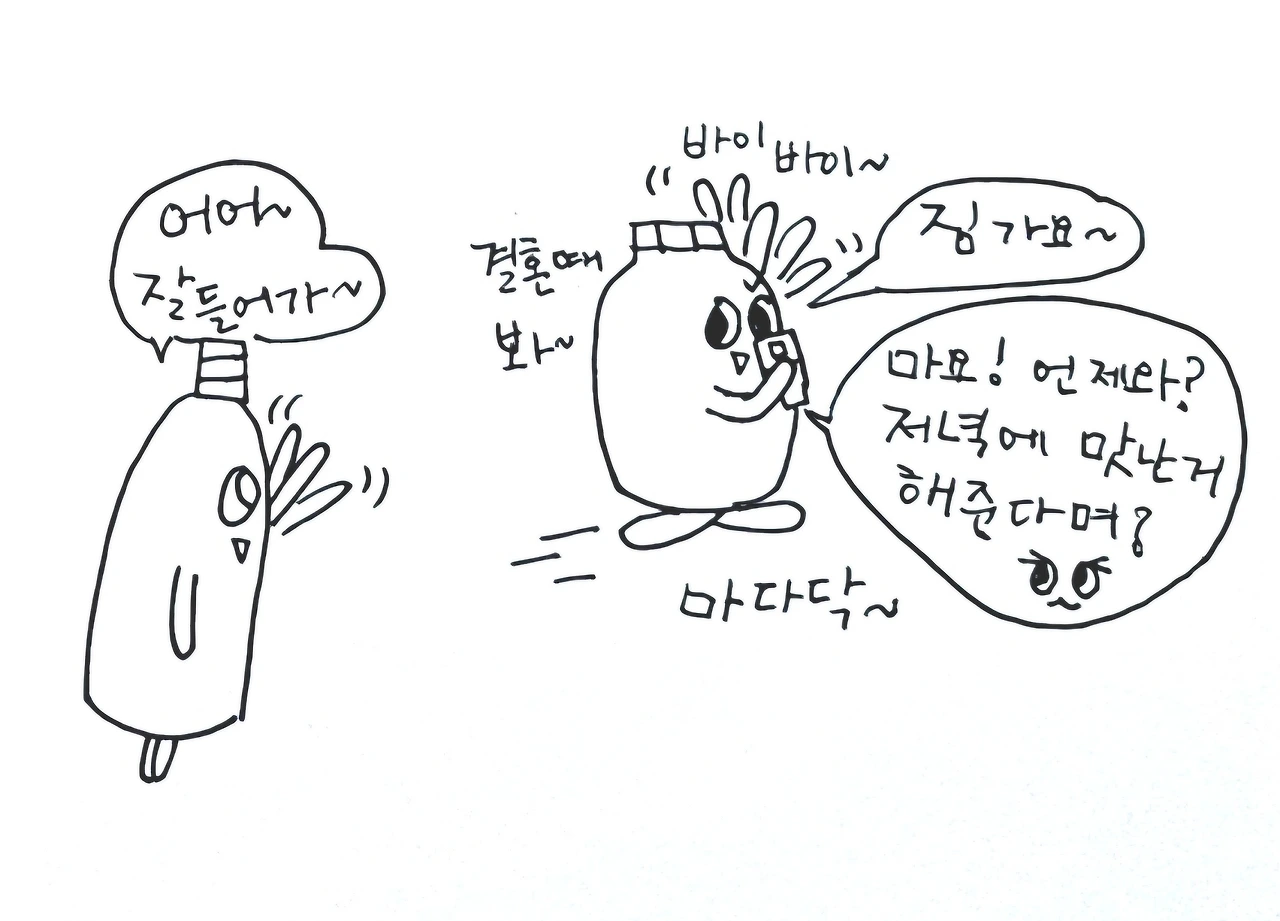 어어~
잘들어가~
바이 바이~
결혼때
봐~
징가요~
마요! 언제와?
저녁에 맛난거
해준다며?
마다닥~